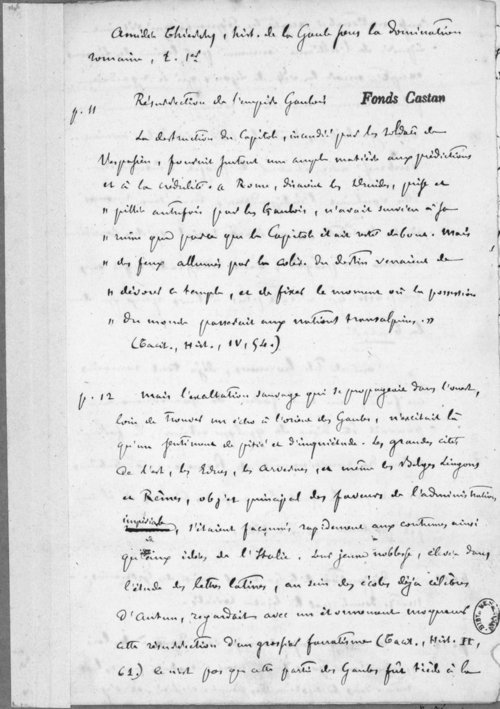 Amédée Thierry, hist. de la Gaule sous la domination
romaine, t. 1er
p. 11 Résurrection de l'empire Gaulois Fonds Castan
La destruction du Capitole, incendié par les soldats de
Vespasien, fournit surtout une ample matière aux prédictions
et à la crédulité. « Rome, disaient les Druides, prise et
" pillée autrefois par les Gaulois, n'avait survécu à sa
" ruine que parce que le Capitole était resté debout. Mais
" des feux allumés par la colère du destin venaient de
" dévorer ce temple, et de fixer le moment où la possession
" du monde passerait aux nations transalpines. "
(Tacit., Hist., IV, 54.)
p. 12 Mais l'exaltation sauvage qui se propageait dans l'ouest,
loin de trouver un écho à l'orient des Gaules, n'excitait là
qu'un sentiment de pitié et d'inquiétude. Les grandes cités
de l'est, les Edues, les Arvernes, et même les Belges Lingons
et Rèmes, objet principal des faveurs de l'administration
impériale, s'étaient façonnés rapidement aux coutumes ainsi
qu'aux idées de l'Italie. Leur jeune noblesse, élevée dans
l'étude des lettres latines, au sein des écoles déjà célèbres
d'Autun, regardait avec un étonnement moqueur
cette résurrection d'un grossier fanatisme (Tacit., Hist. II,
61.) Ce n'est pas que cette partie des Gaules fût tiède à la